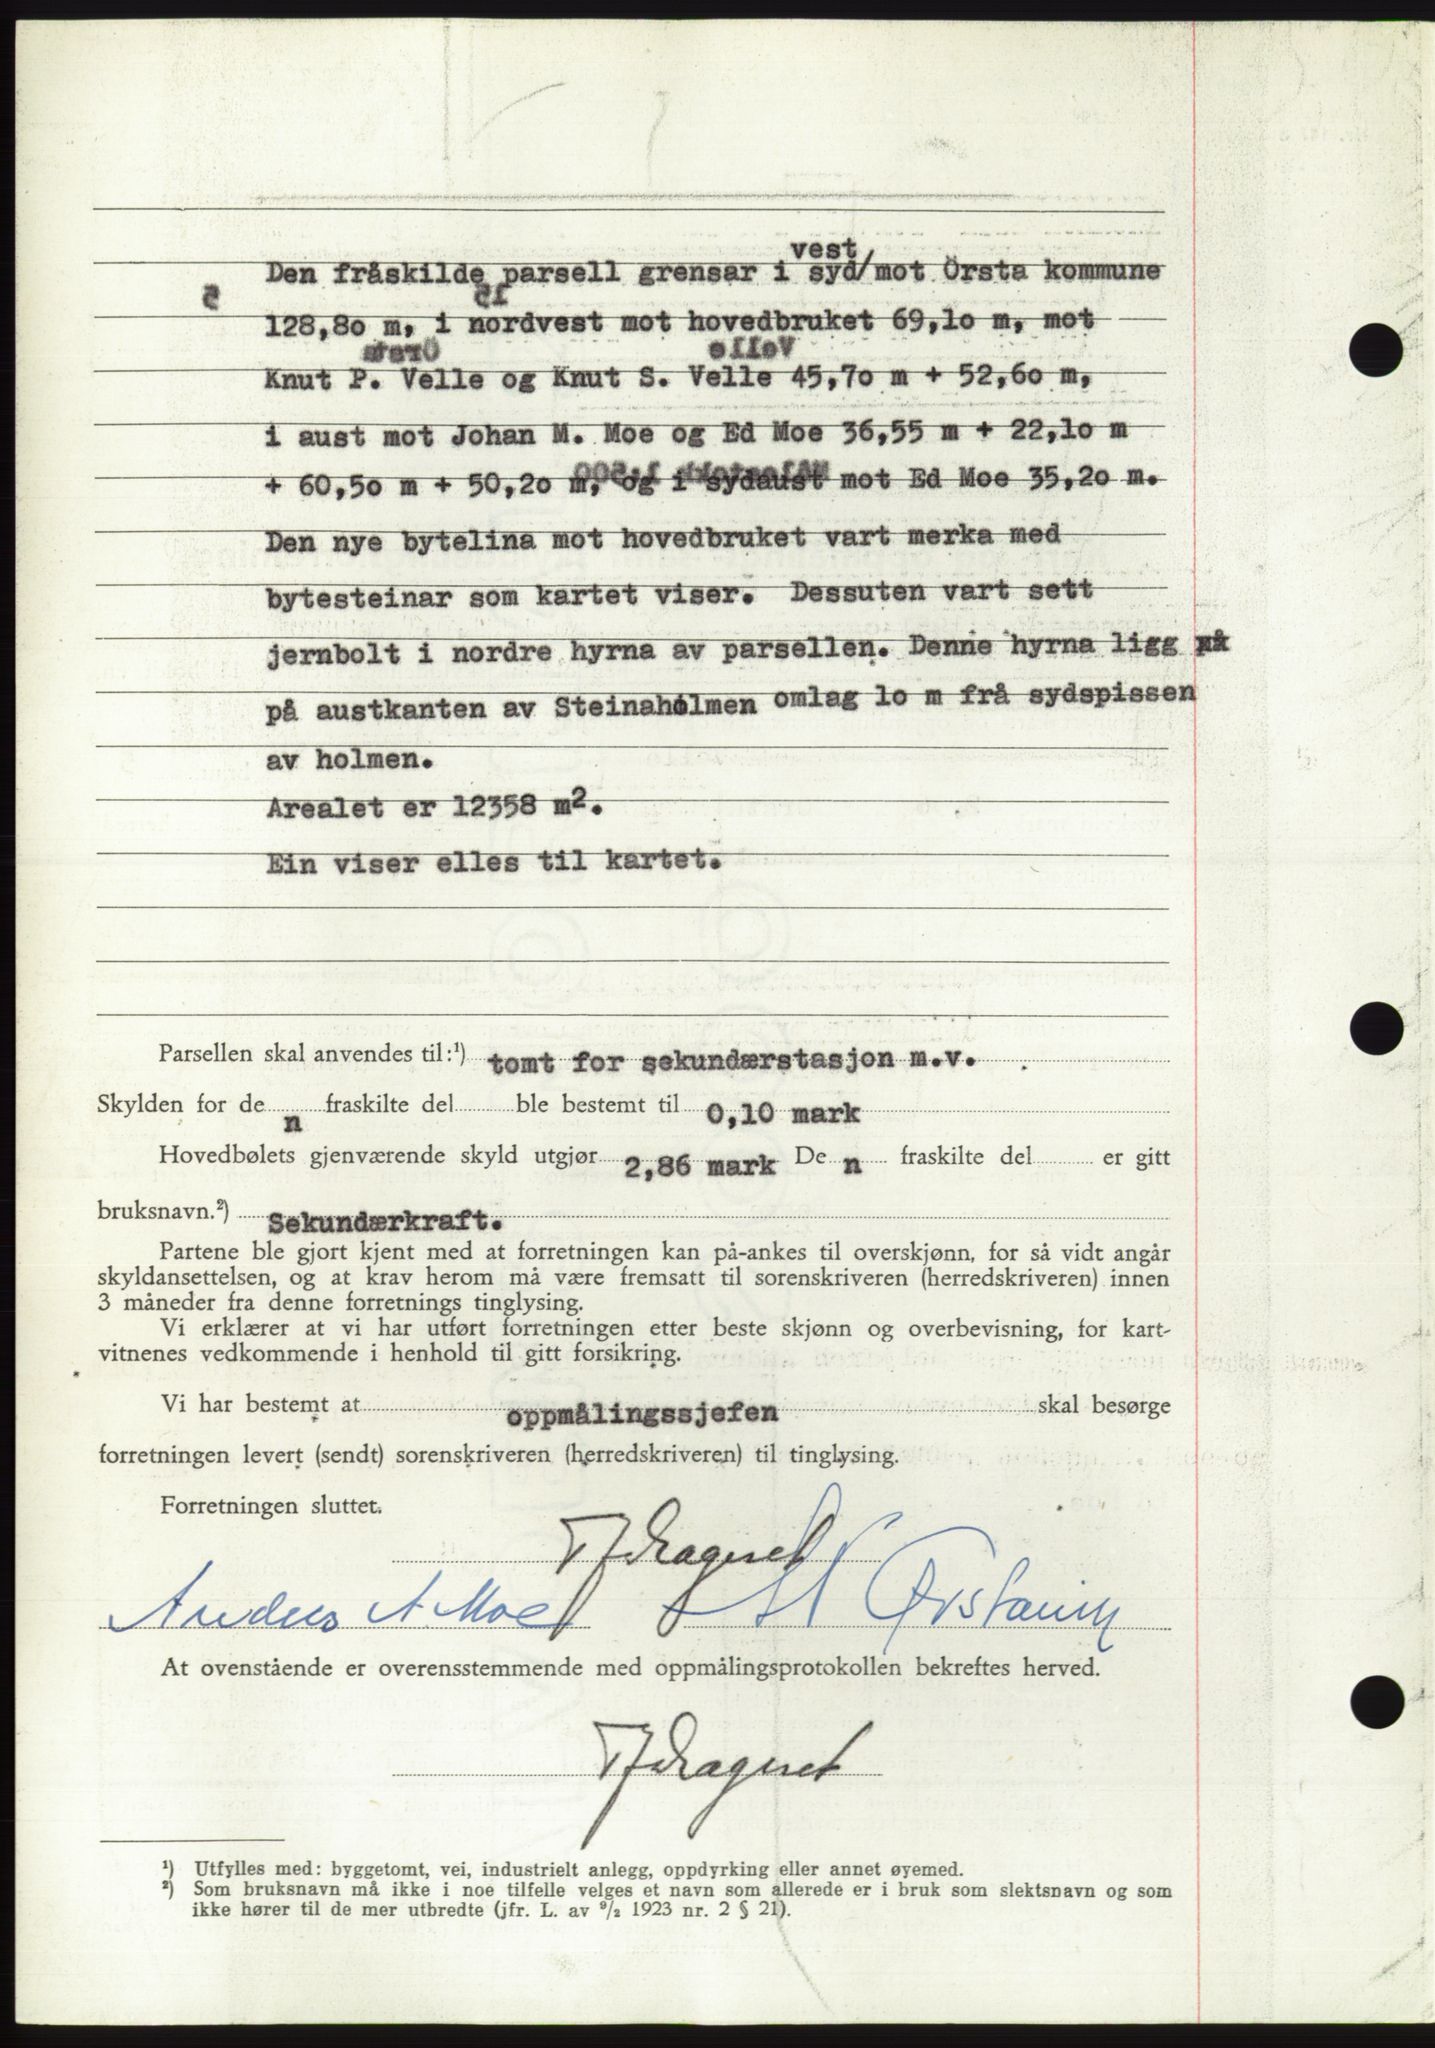 Den fråskilde parsell grensar i syd/vest mot Örsta kommune
128,80 m, i nordvest mot hovedbruket 69,10 m, mot
Knut P. Velle og Knut S. Velle 45,70 m + 52,60 m,
i aust mot Johan M. Moe og Ed Moe 36,55 m + 22,10 m
+ 60,50 m + 50,20 m, og i sydaust mot Ed Moe 35,20 m.
Den nye bytelina mot hovedbruket vart merka med
bytesteinar som kartet viser. Dessuten vart sett
jernbolt i nordre hyrna av parsellen. Denne hyrna ligg
på austkanten av Steinahólmen omlag 10 m frå sydspissen
av holmen.
Arealet er 12358 m².
Ein viser elles til kartet.
Parsellen skal anvendes til:¹) tomt for sekundærstasjon m.v.
Skylden for den fraskilte del ble bestemt til 0,10 mark
Hovedbølets gjenværende skyld utgjør 2,86 mark Den fraskilte del er gitt
bruksnavn.²) Sekundærkraft.
Partene ble gjort kjent med at forretningen kan på-ankes til overskjønn, for så vidt angår
skyldansettelsen, og at krav herom må være fremsatt til sorenskriveren (herredskriveren) innen
3 måneder fra denne forretnings tinglysing.
Vi erklærer at vi har utført forretningen etter beste skjønn og overbevisning, for kart-
vitnenes vedkommende i henhold til gitt forsikring.
Vi har bestemt at oppmålingssjefen skal besørge
forretningen levert (sendt) sorenskriveren (herredskriveren) til tinglysing.
Forretningen sluttet.
Anders A Moe
At ovenstående er overensstemmende med oppmålingsprotokollen bekreftes herved.
¹) Utfylles med: byggetomt, vei, industrielt anlegg, oppdyrking eller annet øyemed.
²) Som bruksnavn må ikke i noe tilfelle velges et navn som allerede er i bruk som slektsnavn og som
ikke hører til de mer utbredte (jfr. L. av ⁹/₂ 1923 nr. 2 § 21).